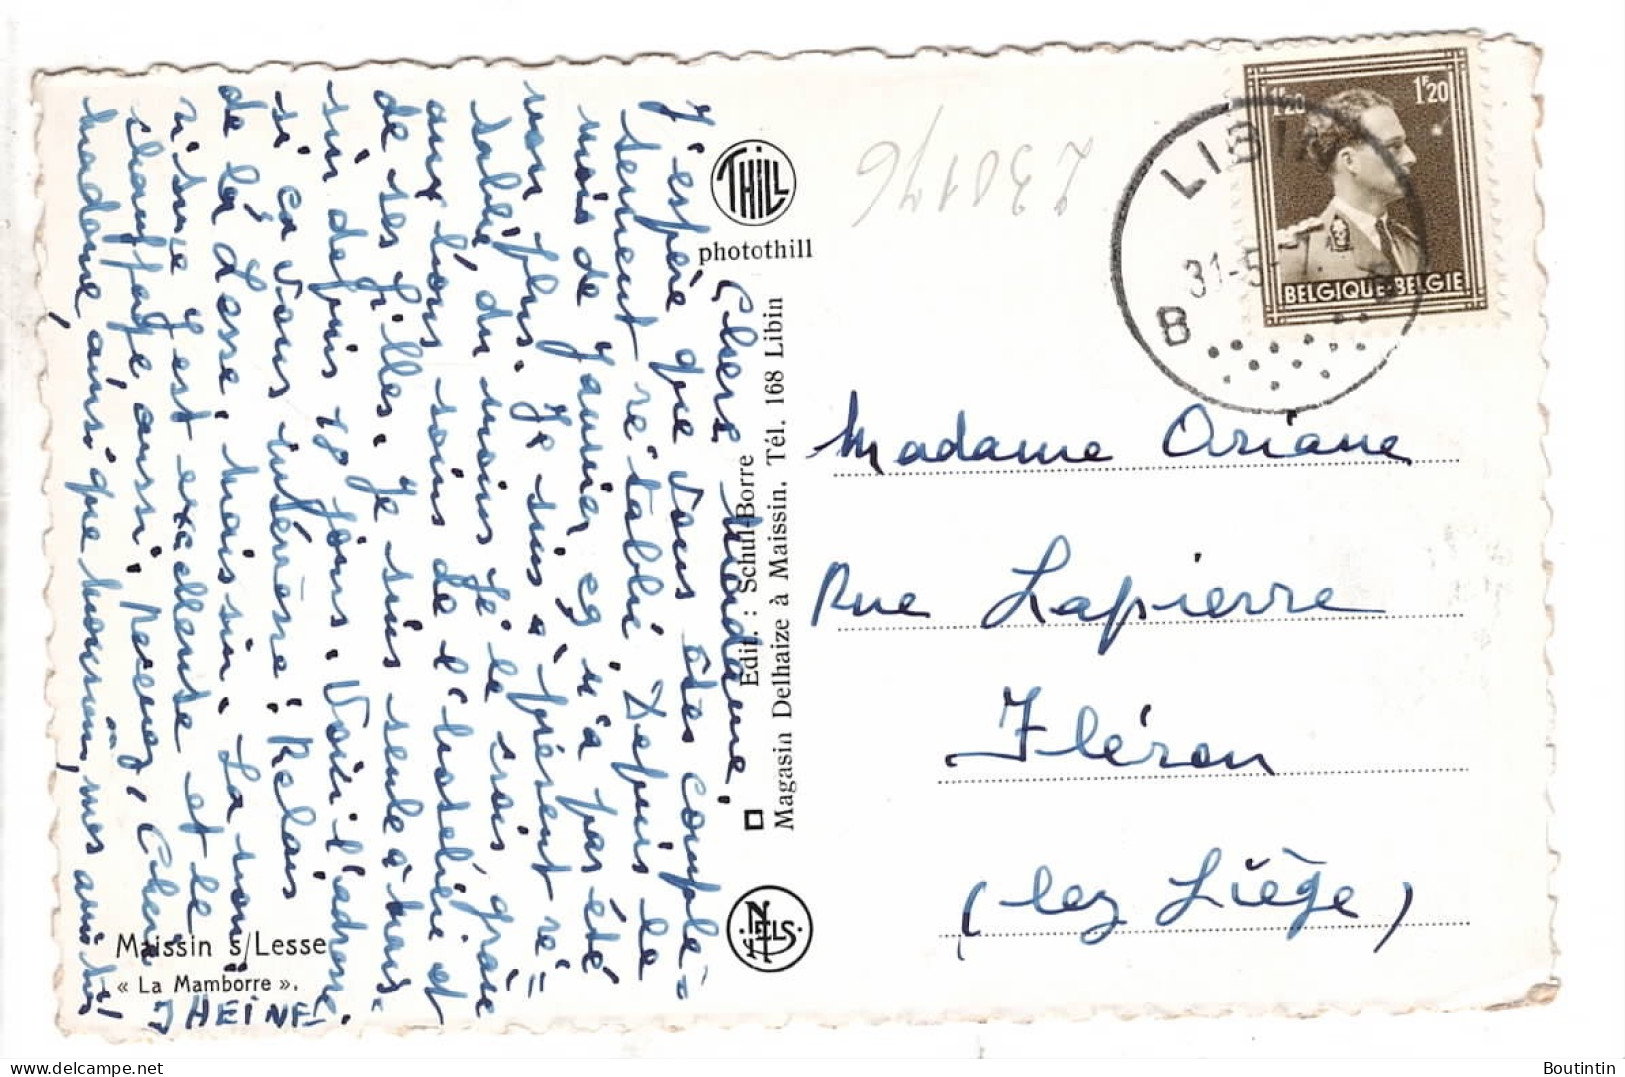 Chère Madame,
J'espère que vous êtes complè-
tement rétablie. Depuis le
mois de Janvier ça n'a pas été
non plus. Je suis à présent ré=
tablie, du moins je le crois grâce
aux bons soins de l'hôtelière et
de ses filles. Je suis seule à Mais-
sin depuis 18 jours. Voici l'adresse
si ça vous intéresse: Relais
de la Lesse, Maissin. La nour
riture est excellente et le
chauffage aussi. Recevez, Chère
Madame, ainsi que Monsieur, mes amitiés!
J HEINE
THILL
photothill
Edit. : Schul-Borre
Magasin Delhaize à Maissin. Tél. 168 Libin
NELS
Maissin s/Lesse
« La Mamborre ».
230176
1F20
1F20
BELGIQUE-BELGIE
LIBIN
31-5-
B
B
Madame Oriane
Rue Lapierre
Fléron
(lez Liège)
delcampe.net
Boutintin